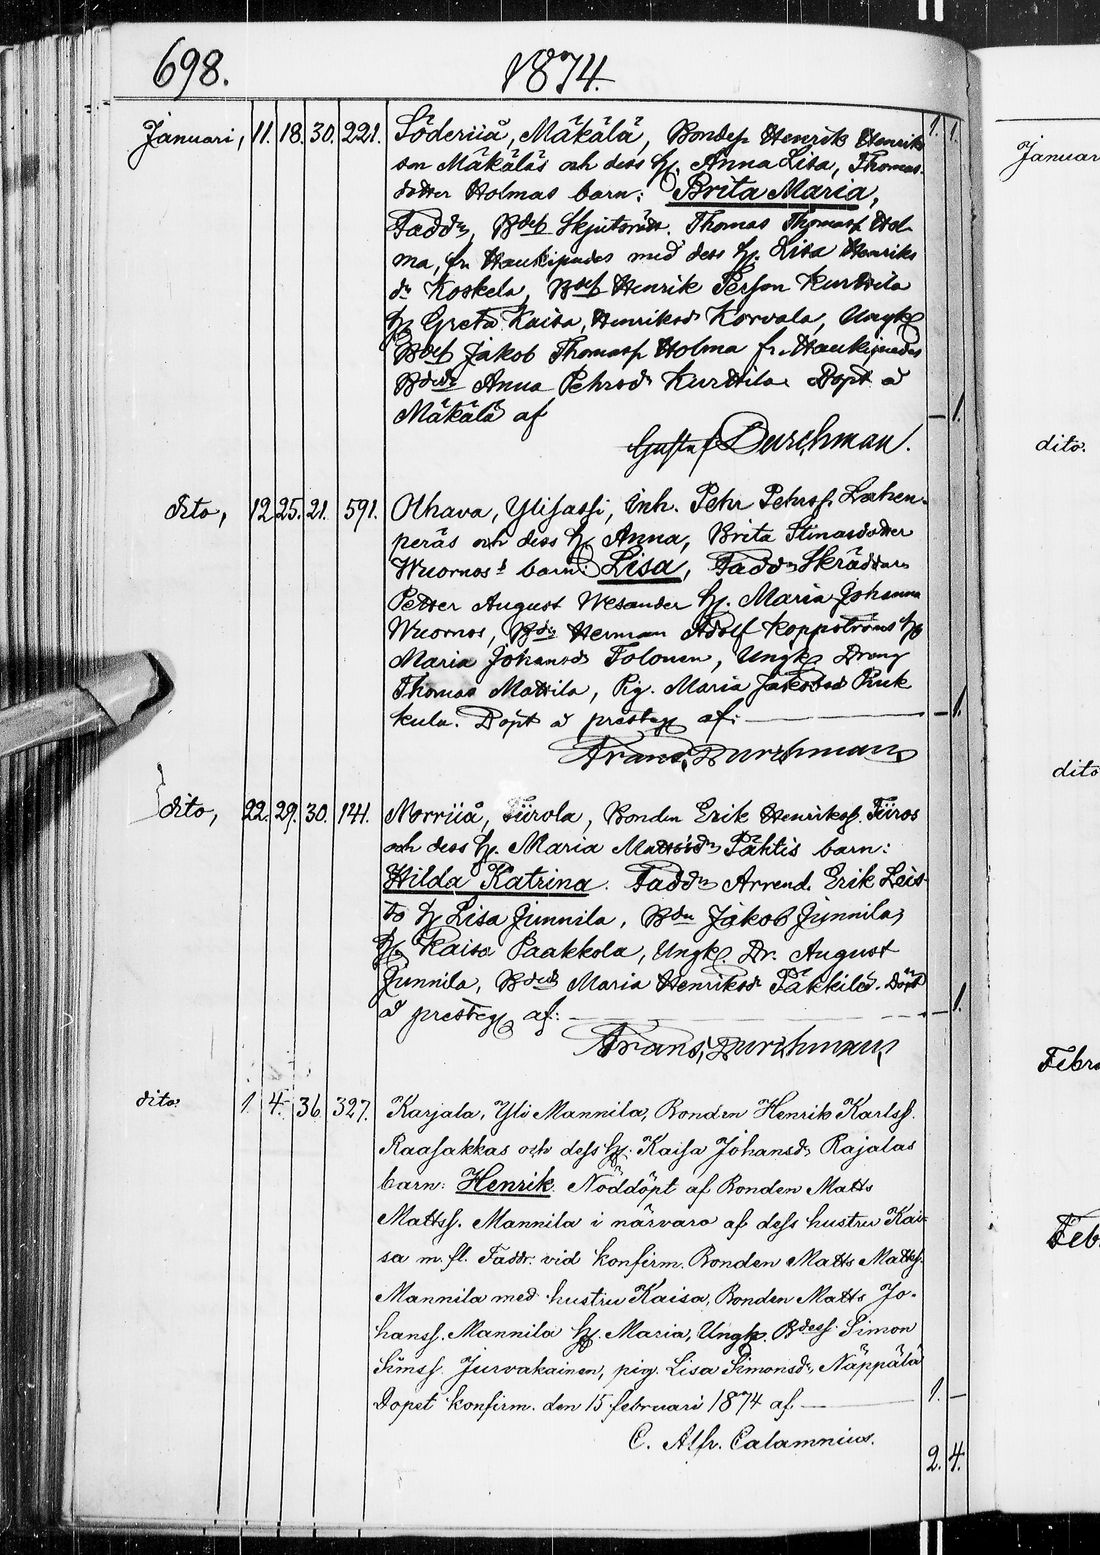 698. 1874.
Januari, 11. 18. 30. 221. Söderiiå, Mäkälä, Bondes. Henrik Henriks 1. 1.
son Mäkäläs och dess h. Anna Lisa, Thomas
dotter Holmas barn: Brita Maria,
Faddr, Bdes Skjutsrätt. Thomas Thomass Hol-
ma, fr. Haukipudas med dess h. Lisa Henriks
dr Koskela, Bdes Henrik Persson Kurttila
h Greta Kaisa, Henriksd Korvala, Ungk
Bdes Jakob Thomass Holma fr. Haukipudas
Bdedr Anna Pehrsdr Kurttila. Döpt å
Mäkälä af — 1.
Gustaf Durchman.
dito, 12 25. 21. 591. Olhava, Ylisassi, inh. Pehr Pehrss. Lahen-
peräs och dess h Anna, Brita Stinasdotter
Wuornos's barn: Lisa, Faddr Skräddarn
Petter August Wesander h. Maria Johanna
Wuornos, Bdn Herman Adolf Koppströms h
Maria Johansdr Tolonen, Ungk Dräng
Thomas Mattila, Pig. Maria Jakobsd Ruk
kula. Döpt å prestg af: — 1.
Frans, Durchman,
dito, 22. 29. 30. 141. Norriiå, Tiirola, Bonden Erik Henrikss. Tiiros
och dess h. Maria Mattsdr Pähtis barn:
Hilda Katrina. Faddr Arrend. Erik Leis-
to h Lisa Junnila, Bdn Jakob Junnila,
h. Kaisa Paakkola, Ungk. Dr. August
Junnila, Bdedr Maria Henriksdr Päkkilä. Döpt
å prestg af: — 1.
Frans, Durchman,
dito. 1. 4. 36 327. Karjala, Yli Mannila, Bonden Henrik Karlss.
Raasakkas och dess h: Kaisa Johansd. Rajalas
barn: Henrik. Nöddöpt af Bonden Matts
Mattss. Mannila i närvaro af dess hustru Kai-
sa m. fl. Faddr. vid konfirm. Bonden Matts Mattss.
Mannila med hustru Kaisa, Bonden Matts Jo-
hanss. Mannila h. Maria, Ungk. Bdess. Simon
Simss. Jurvakainen, pig. Lisa Simonsdr, Näppälä
Dopet konfirm. den 15 februari 1874 af. — 1. —
C. Alfr. Calamnius.
2. 4.
Januar
dito.
dito
Febru
Feb.